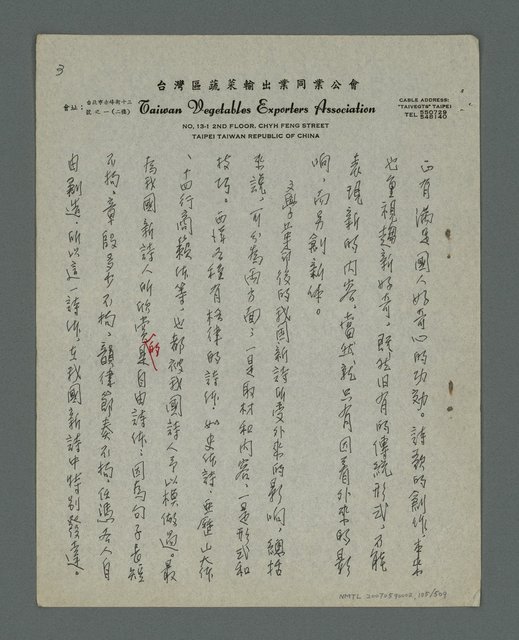 3
台灣區蔬菜輸出業同業公會
會址：台北市赤峰街十三號之一(二樓)
Taiwan Vegetables Exporters Association
NO. 13-1 2ND FLOOR, CHYH FENG STREET
TAIPEI TAIWAN REPUBLIC OF CHINA
CABLE ADDRESS:
"TAIVEGTS" TAIPEI
TEL 550729
548140
正有滿足國人好奇心的功効。詩歌的創作，本來
也重視趨新好奇。既然旧有的傳統形式，不能
表現新的內容，當然就只有因着外來的影
響，而另創新体。
文學革命後的我國新詩所受外來的影响，總括
來說，可分為兩方面：一是取材和內容，一是形式和
技巧。西洋各種有格律的詩体，如史体詩，亞歷山大体
、十四行商籟体等，也都被我國詩人予以模倣過。最
為我國新詩人所欣賞的是自由詩体，因為句子長短
不拘，章段多少不拘，韻律節奏不拘，任憑各人自
由創造，所以這一詩体，在我國新詩中特別發達。
NMTL 20070590002, 105/509